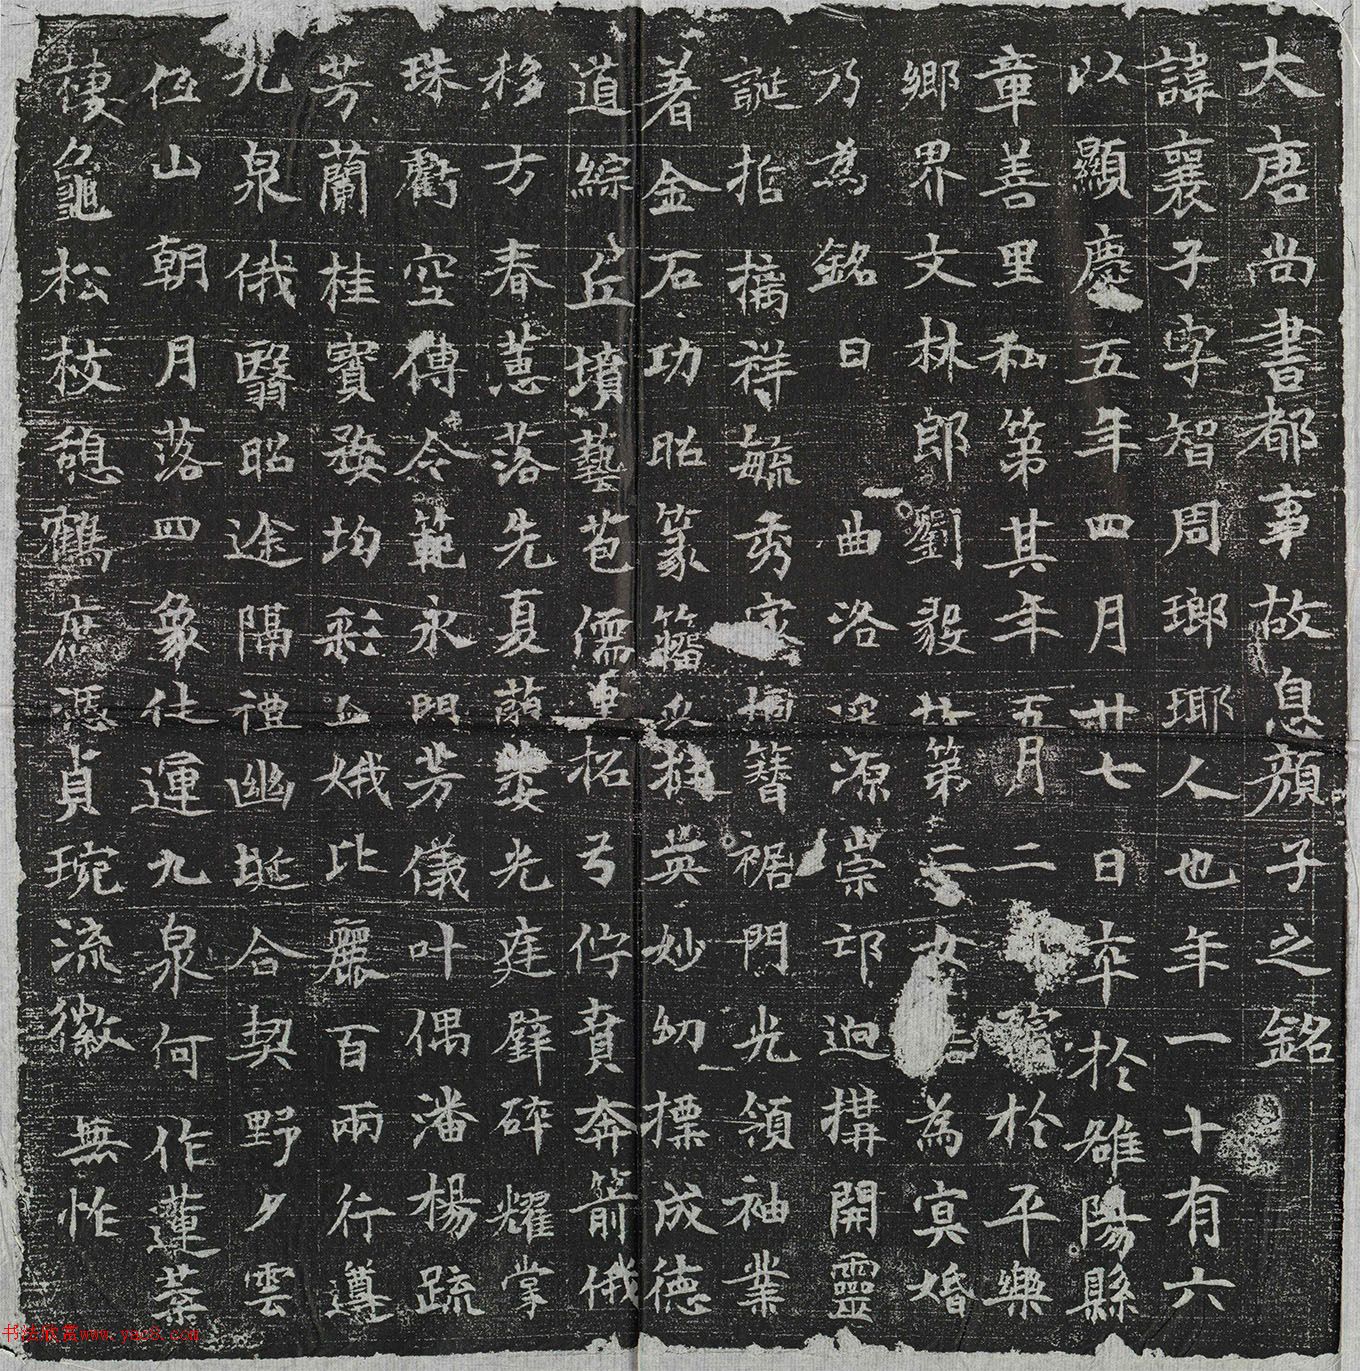 大唐尚書都事故息顔子之銘
諱襄子字智周瑯瑘人也年一十有六
以顯慶五年四月廿七日卒於雒陽縣
章善里私第其年五月二日窆於平樂
鄉界文林郎劉毅故第二女結為㝠婚
乃為銘曰 曲洛深源崇邙逈搆開靈
誕哲摛祥毓秀家擅簪裾門光領袖業
著金石功昭篆籀英妙幼摽成德
道綜丘墳藝苞儒里柘弓佇賁奔箭俄
移方春蕙落先夏蘭萎光莛璧碎耀掌
珠虧空傳令範永閟芳儀叶偶潘楊疏
芳蘭桂寳婺均彩金娥比麗百兩行遵
九泉俄翳昭途隔禮幽埏合契野夕雲
低山朝月落四象仕運九泉何作蓮葉
棲龜松枝憩鶴庶憑貞琬流徽無怍
书法欣赏www.yac8.com